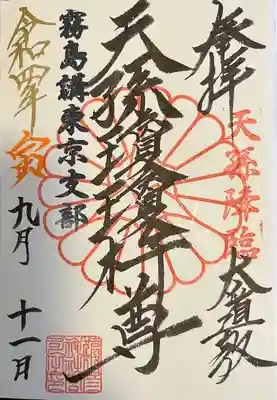 奉拝
天孫降臨
大道教
天孫瓊瓊杵尊
霧島講東京支部
令和四年
寅
九月
十一日